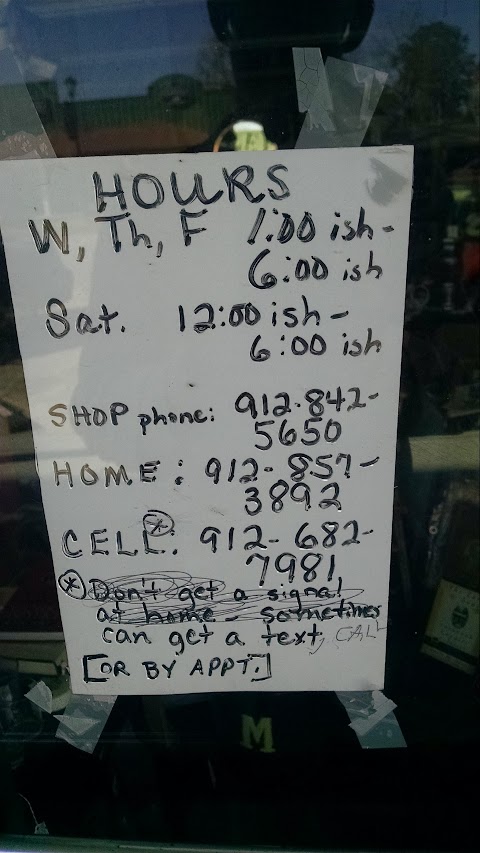 HOURS
W, Th, F 1:00 ish-
6:00 ish
Sat. 12:00 ish-
6:00 ish
SHOP phone: 912-842-
5650
HOME: 912-857-
3892
CELL*: 912-682-
7981
* Don't get a signal
at home - sometimes
can get a text, CALL
[OR BY APPT.]
M